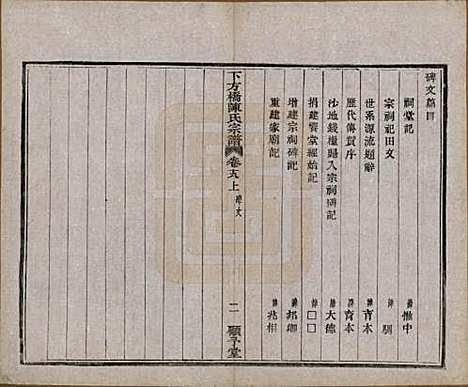 碑文篇目
祠堂記 諱惟中
宗祠祀田文 諱馴
世系源流題辭 諱育本
歷代傳贊序 諱育本
沙地錢糧歸入宗祠碑記 諱大德
捐建饗堂經始記 諱囗囗
增建宗祠碑記 諱邦卿
重建家廟記 諱兆相
下方橋陳氏宗譜 卷五上 碑文 二